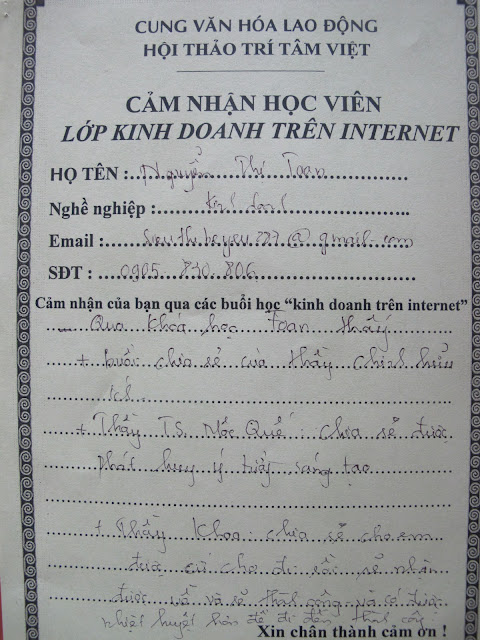 CUNG VĂN HÓA LAO ĐỘNG
HỘI THẢO TRÍ TÂM VIỆT
CẢM NHẬN HỌC VIÊN
LỚP KINH DOANH TRÊN INTERNET
HỌ TÊN : Nguyễn Thị Toan
Nghề nghiệp : Kinh doanh
Email : sieuthibeyeu227@gmail.com
SĐT : 0905 830 806
Cảm nhận của bạn qua các buổi học “kinh doanh trên internet”
- Qua khoá học Toan thấy
+ buổi chia sẽ của thầy
ích.
+ Thầy TS. Mốc Quố : chia sẽ được
phát huy ý sáng tạo
+ Thầy Khoa : chia sẽ cho em
được cứ cho đi sẽ nhận
được và sẽ thành công và có được
nhiệt huyết hơn để đi đến thành công
Xin chân thành cảm ơn !